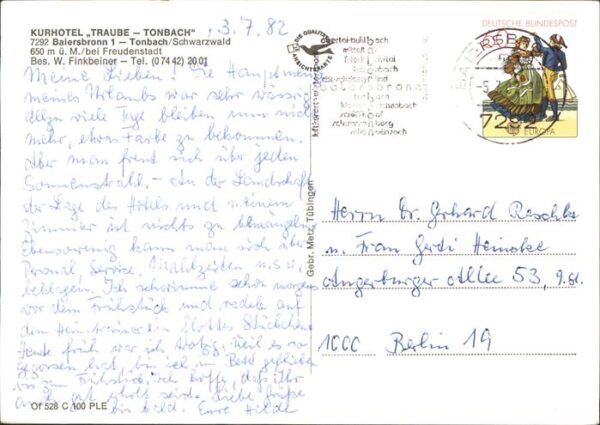 3.7.82
KURHOTEL „TRAUBE – TONBACH"
7292 Baiersbronn 1 – Tonbach/Schwarzwald
650 m ü. M./bei Freudenstadt
Bes. W. Finkbeiner – Tel. (0 74 42) 20 01
Meine Lieben! Die
meines Urlaubs war sehr wässrig
allzu viele Tage bleiben nun nicht
mehr, etwas Farbe zu bekommen.
Aber man freut sich über jeden
Sonnenstrahl. – An der Landschaft
der Lage des Hotels und meinem
Zimmer ist nichts zu bemängeln
Ebensowenig kann man sich über
Personal, Service, Mahlzeiten u.s.w.
beklagen. Ich schwimme schon morgens
vor dem Frühstück und radele auf
dem Heimtrainer ein flottes Stückchen
Heute früh war ich trotzig, weil es so
gegossen hat, bin ich im Bett geblieben
bis zum Frühstück. Ich hoffe, daß Ihr
gut erholt seid. Liebe Grüße
bis bald. Eure Hilde
Of 528 C 100 PLE
Gebr. Metz, Tübingen
DEUTSCHE BUNDESPOST
EUROPA
7292
Herrn Dr. Gerhard Raschke
u. Frau Gerti Heinoke
Angerburger Allee 53, 9.
1000 Berlin 19